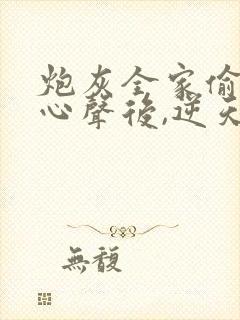 炮灰全家偷
心聲後,逆天
無馥